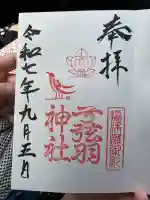 奉拝
弓弦羽
神社
令和七年九月五日